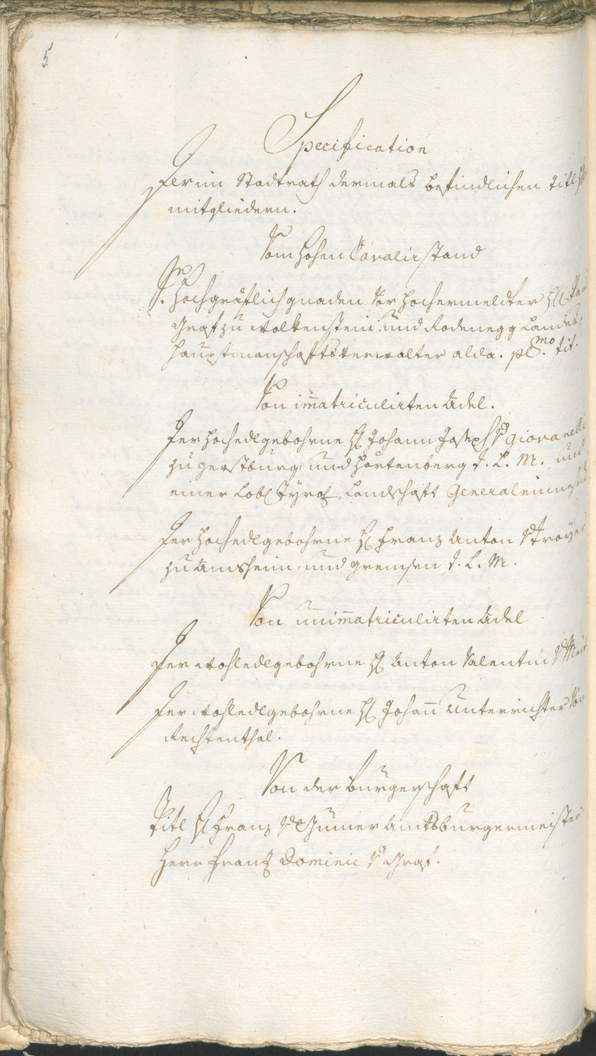 5
Specification
Der im Stadtrath dermals befindlichen titl
mitgliedern.
Vom hohen Cavalierstand
Hochgräflich gnaden vor hochermeldter
Graf zu Wolkenstein und Rodenegg Landes
Hauptmanschafts verwalter alda. tit.
Von immatriculirten Adel.
Der hochedlgebohrne H. Johann Joseph v. Giovanelli
zu Gerstburg und Hörtenberg T. L. M. und
einer Löbl. Tyrol. Landschaft General einnehmer
Der hochedlgebohrne H. Franz Anton v. Troyer
zu und T. L. M.
Von unimmatriculirten Adel
Der wohledlgebohrne H. Anton Valentin v.
Der wohledlgebohrne H. Johann Unterrichter von
Rechtenthal.
Von der Bürgerschaft
Titl H. Franz v. Gumer Amtsbürgermeister
Herr Frantz Dominic v. Graf.